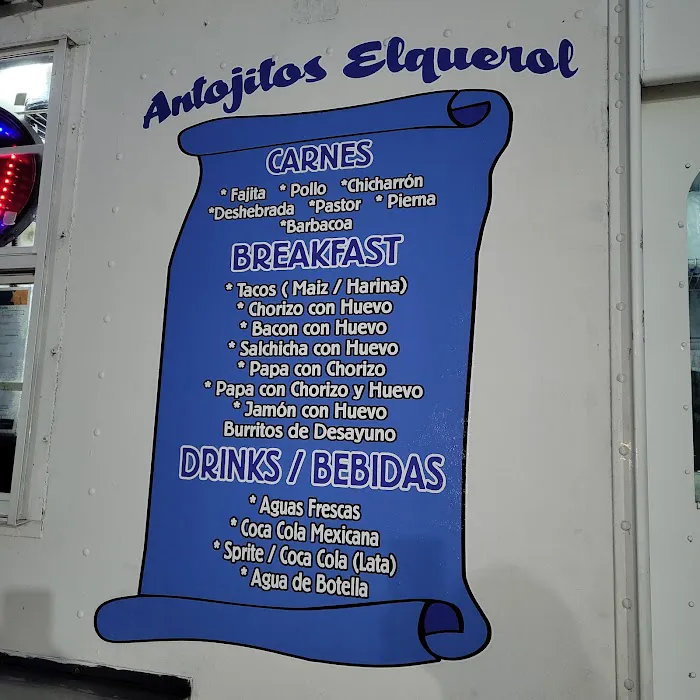 Antojitos Elquerol
CARNES
* Fajita * Pollo *Chicharrón
*Deshebrada *Pastor * Pierna
*Barbacoa
BREAKFAST
* Tacos ( Maiz / Harina)
* Chorizo con Huevo
* Bacon con Huevo
* Salchicha con Huevo
* Papa con Chorizo
* Papa con Chorizo y Huevo
* Jamón con Huevo
Burritos de Desayuno
DRINKS / BEBIDAS
* Aguas Frescas
* Coca Cola Mexicana
* Sprite / Coca Cola (Lata)
* Agua de Botella